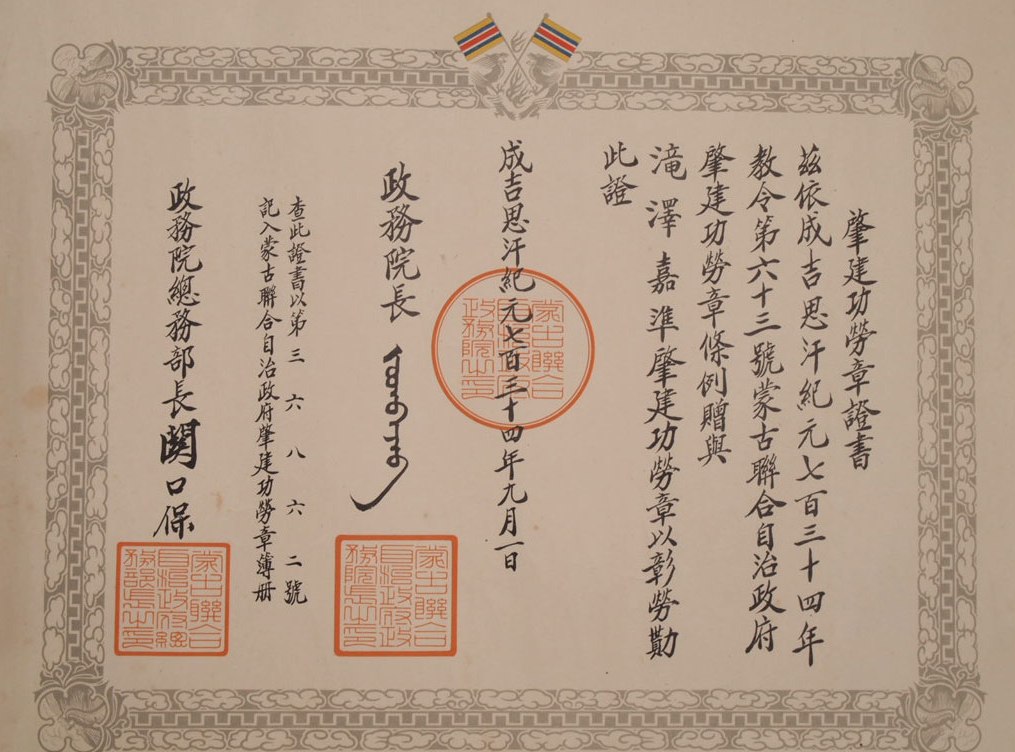 肇建功勞章證書
茲依成吉思汗紀元七百三十四年
教令第六十三號蒙古聯合自治政府
肇建功勞章條例贈與
滝澤嘉準肇建功勞章以彰勞勩
此證
成吉思汗紀元七百三十四年九月一日
蒙古聯合
自治政府
政務院之印
政務院長
蒙古聯合
自治政府政
務院長之印
查此證書以第三六八六二號
記入蒙古聯合自治政府肇建功勞章簿册
政務院總務部長関口保
蒙古聯合
自治政府總
務部長之印